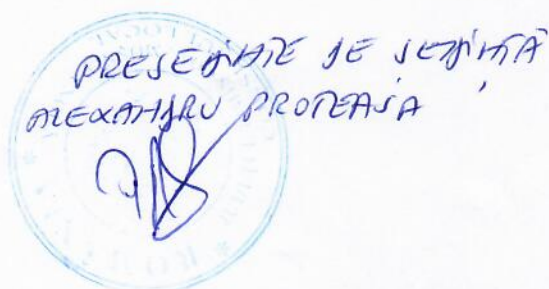 PREȘEDINTE DE ȘEDINȚĂ
ALEXANDRU PROTEASA